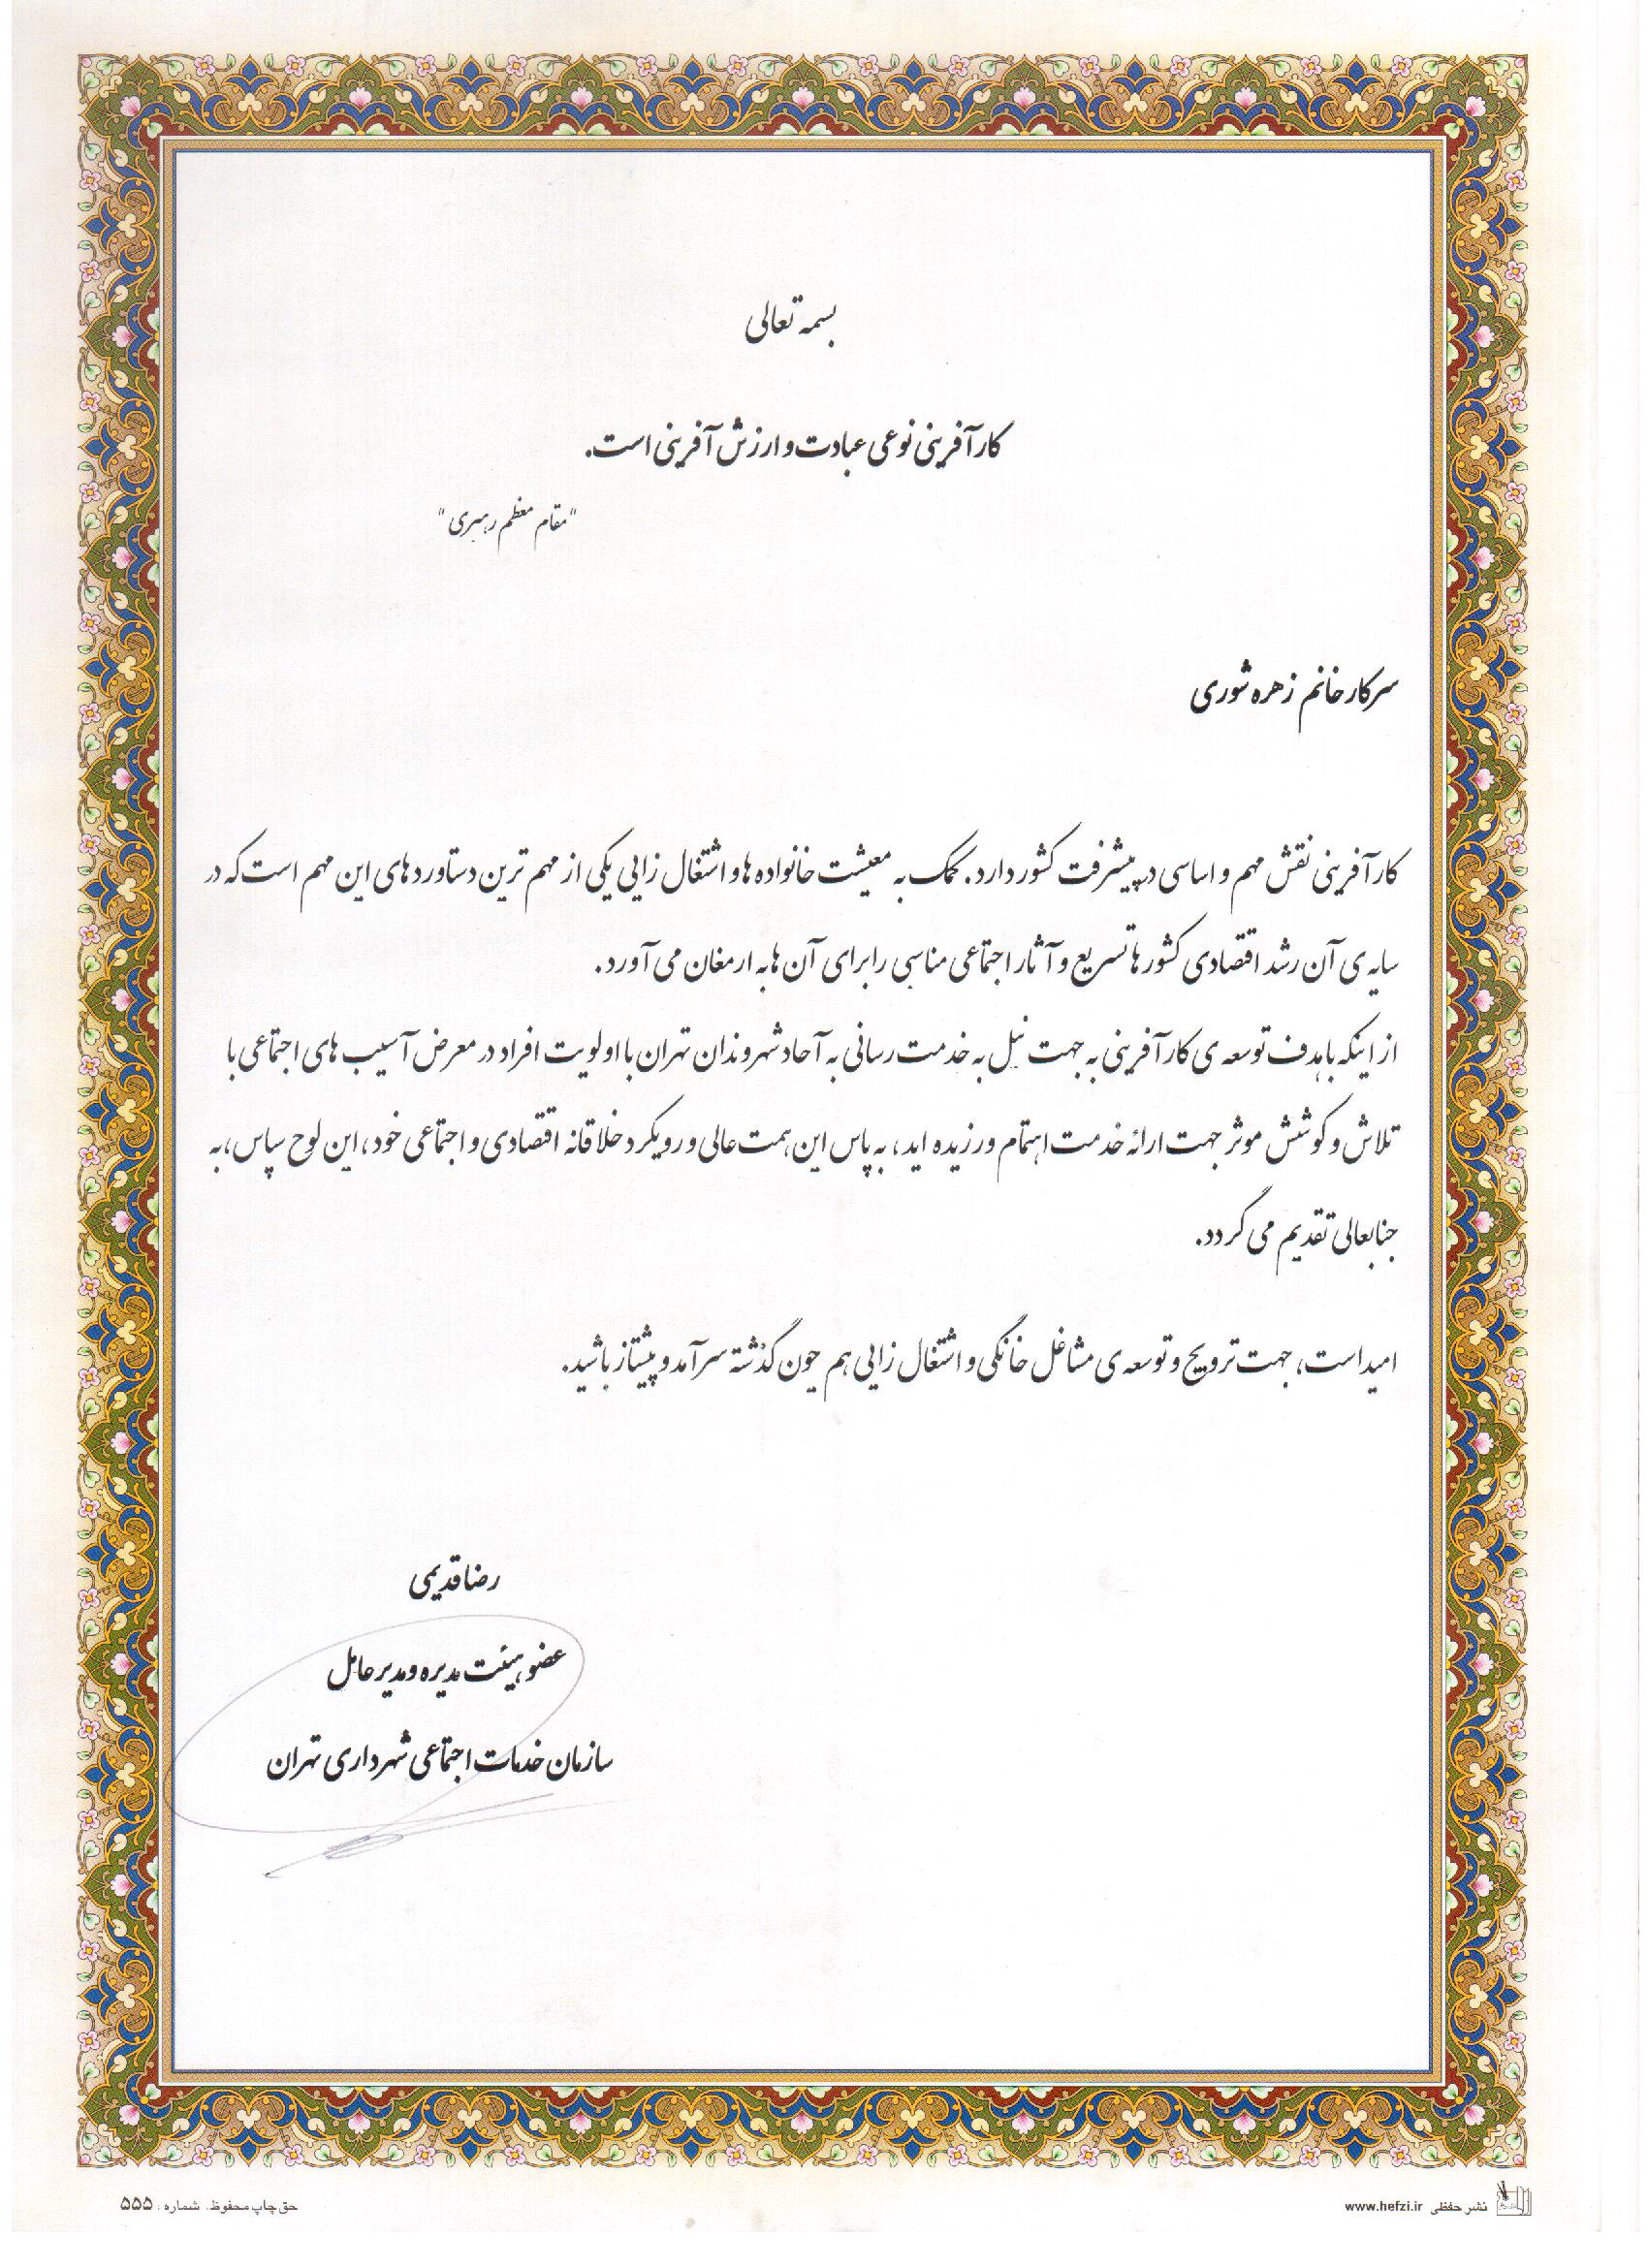 بسمه تعالی
کارآفرینی نوعی عبادت و ارزش آفرینی است.
"مقام معظم رهبری"
سرکار خانم زهره شوری
کارآفرینی نقش مهم و اساسی در پیشرفت کشور دارد. کمک به معیشت خانواده ها و اشتغال زایی یکی از مهم ترین دستاوردهای این مهم است که در
سایه ی آن رشد اقتصادی کشورها تسریع و آثار اجتماعی مناسبی را برای آن ها به ارمغان می آورد.
از اینکه با هدف توسعه ی کارآفرینی به جهت نیل به خدمت رسانی به آحاد شهروندان تهران با اولویت افراد در معرض آسیب های اجتماعی با
تلاش و کوشش موثر جهت ارائه خدمت اهتمام ورزیده اید، به پاس این همت عالی و رویکرد خلاقانه اقتصادی و اجتماعی خود، این لوح سپاس، به
جنابعالی تقدیم می گردد.
امید است، جهت ترویج و توسعه ی مشاغل خانگی و اشتغال زایی هم چون گذشته سرآمد و پیشتاز باشید.
رضا قدیمی
عضو هیئت مدیره و مدیر عامل
سازمان خدمات اجتماعی شهرداری تهران
نشر حفظی www.hefzi.ir
حق چاپ محفوظ. شماره : ۵۵۵